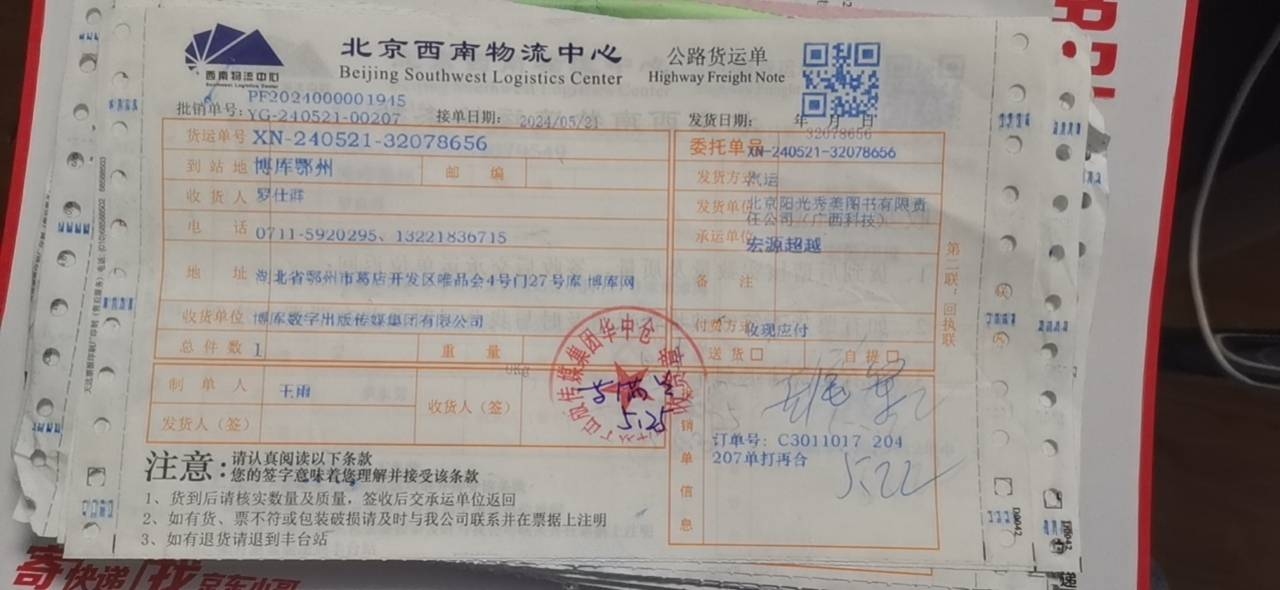 北京西南物流中心
公路货运单
西南物流中心
Southwest Logistics Center
Beijing Southwest Logistics Center
Highway Freight Note
PF2024000001945
批销单号: YG-240521-00207
接单日期: 2024/05/21
发货日期: 年 月 日
32078656
货运单号 XN-240521-32078656
委托单号 XN-240521-32078656
到站地 博库鄂州
邮编
发货方式 汽运
收货人 罗仕群
发货单位 北京阳光秀美图书有限责
任公司(广西科技)
电话 0711-5920295、13221836715
承运单位 宏源超越
地址 湖北省鄂州市葛店开发区唯品会4号门27号库 博库网
备注
收货单位 博库数字出版传媒集团有限公司
付费方式 收现应付
总件数 1
重量 0Kg
送货□ 自提□
制单人 王雨
收货人(签)
5.25
发货人(签)
销单信息
订单号: C3011017 204
207单打再合
5.22
第二联:回执联
注意:
请认真阅读以下条款
您的签字意味着您理解并接受该条款
1、货到后请核实数量及质量,签收后交承运单位返回
2、如有货、票不符或包装破损请及时与我公司联系并在票据上注明
3、如有退货请退到丰台站
D0042
D0042
寄快递 找京东小哥